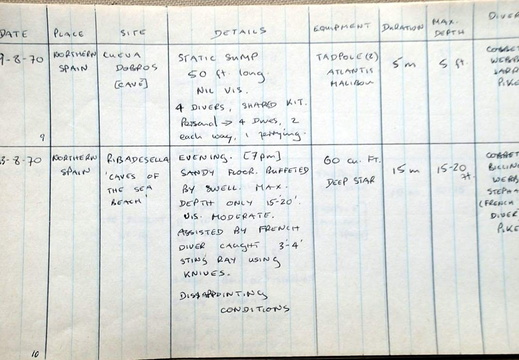 DATE PLACE SITE DETAILS EQUIPMENT DURATION MAX. DEPTH DIVER
9-8-70 NORTHERN SPAIN CUEVA DOBROS [CAVE]
STATIC SUMP
50 ft long.
NIL VIS.
4 DIVERS, SHARED KIT.
Personal → 4 Dives, 2
each way, 1 ferrying.
TADPOLE (2)
ATLANTIS
MALIBOU
5 m
5 ft.
PIKE
9
-8-70 NORTHERN SPAIN RIBADESELLA
'CAVES OF
THE SEA
BEACH'
EVENING. [7pm]
SANDY FLOOR. BUFFETED
BY SWELL. MAX.
DEPTH ONLY 15-20'
VIS. MODERATE.
ASSISTED BY FRENCH
DIVER CAUGHT 3-4'
STING RAY USING
KNIVES.
DISAPPOINTING
CONDITIONS
60 CU. FT.
DEEP STAR
15 m
15-20 ft.
(FRENCH
DIVER
PIKE
10